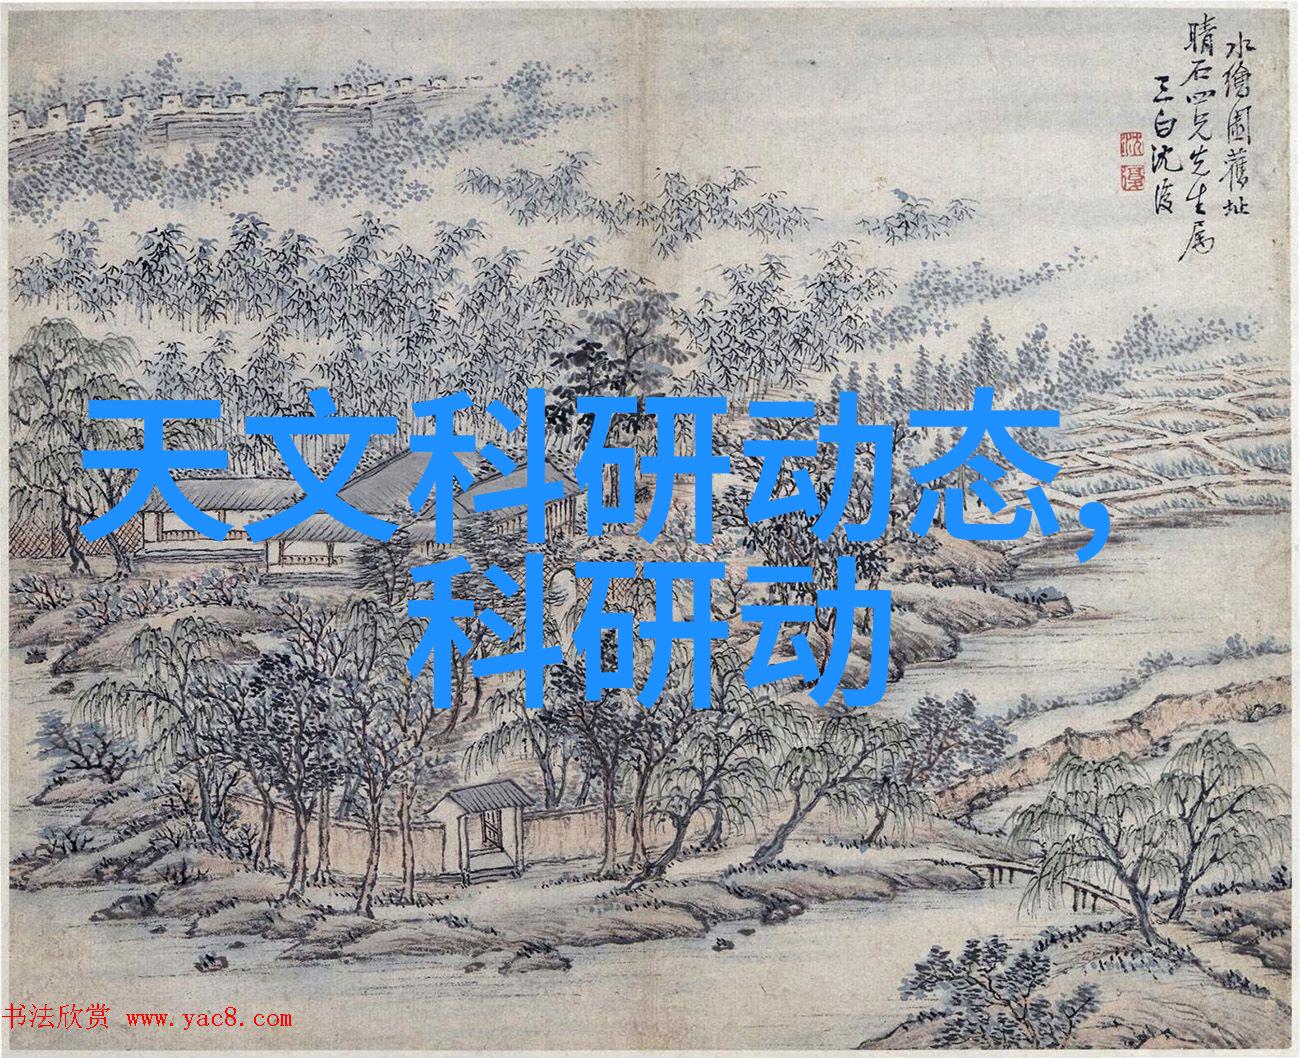 水繪園舊址
晴石四兄先生属
三白沈復
沈
復
天文科研动态,
科研动
书法欣赏 www.yac8.com